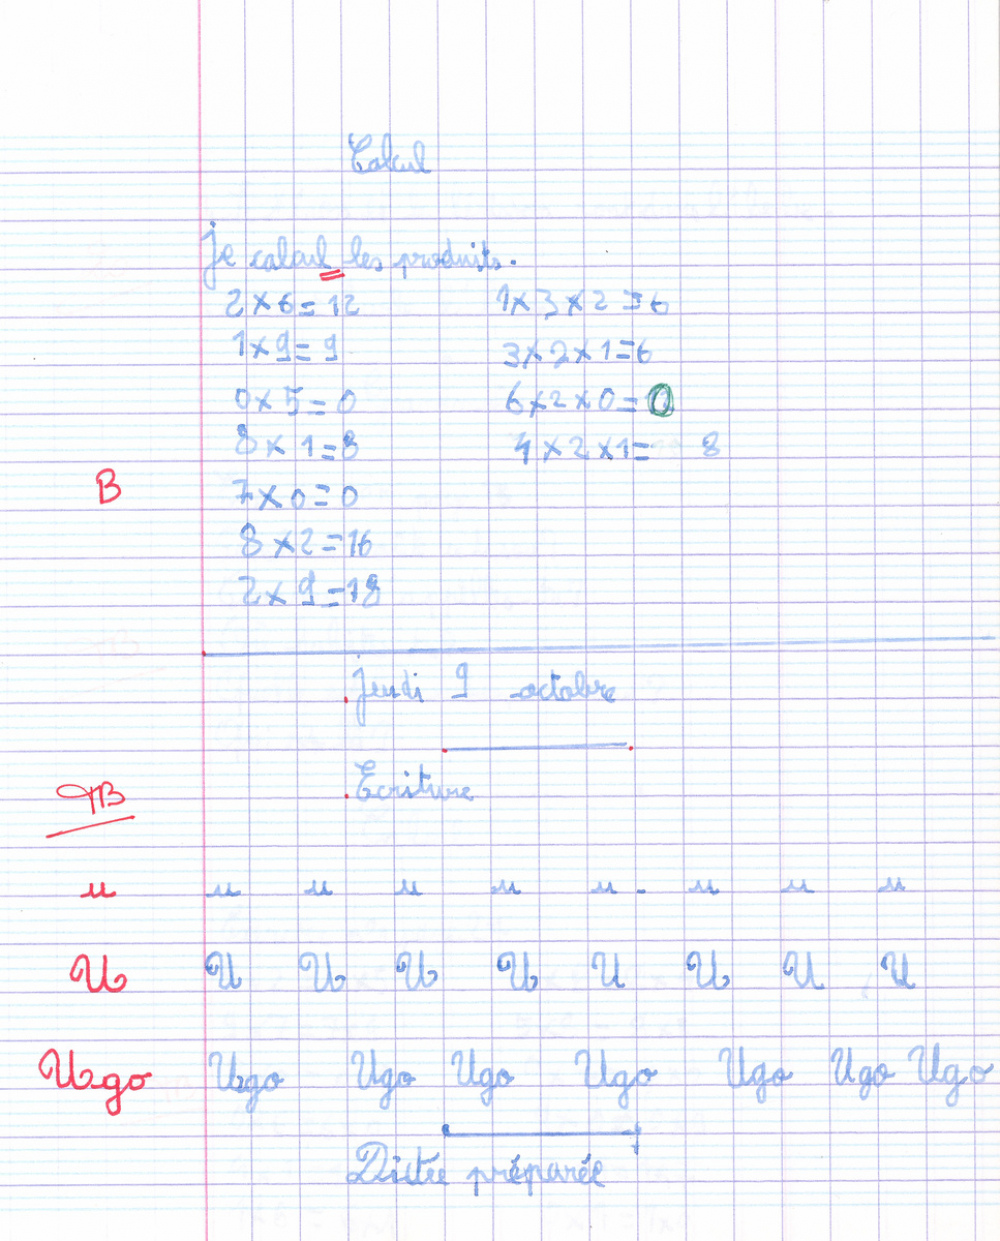 Calcul
Je calcul les produits.
2 x 6 = 12
1 x 9 = 9
0 x 5 = 0
8 x 1 = 8
7 x 0 = 0
8 x 2 = 16
2 x 9 = 18
1 x 3 x 2 = 6
3 x 2 x 1 = 6
6 x 2 x 0 = 0
4 x 2 x 1 = 8
B
Jeudi 9 octobre
Ecriture
TB
u u u u u u u u u
U U U U U U U U U
Ugo Ugo Ugo Ugo Ugo Ugo Ugo Ugo
Dictée préparée